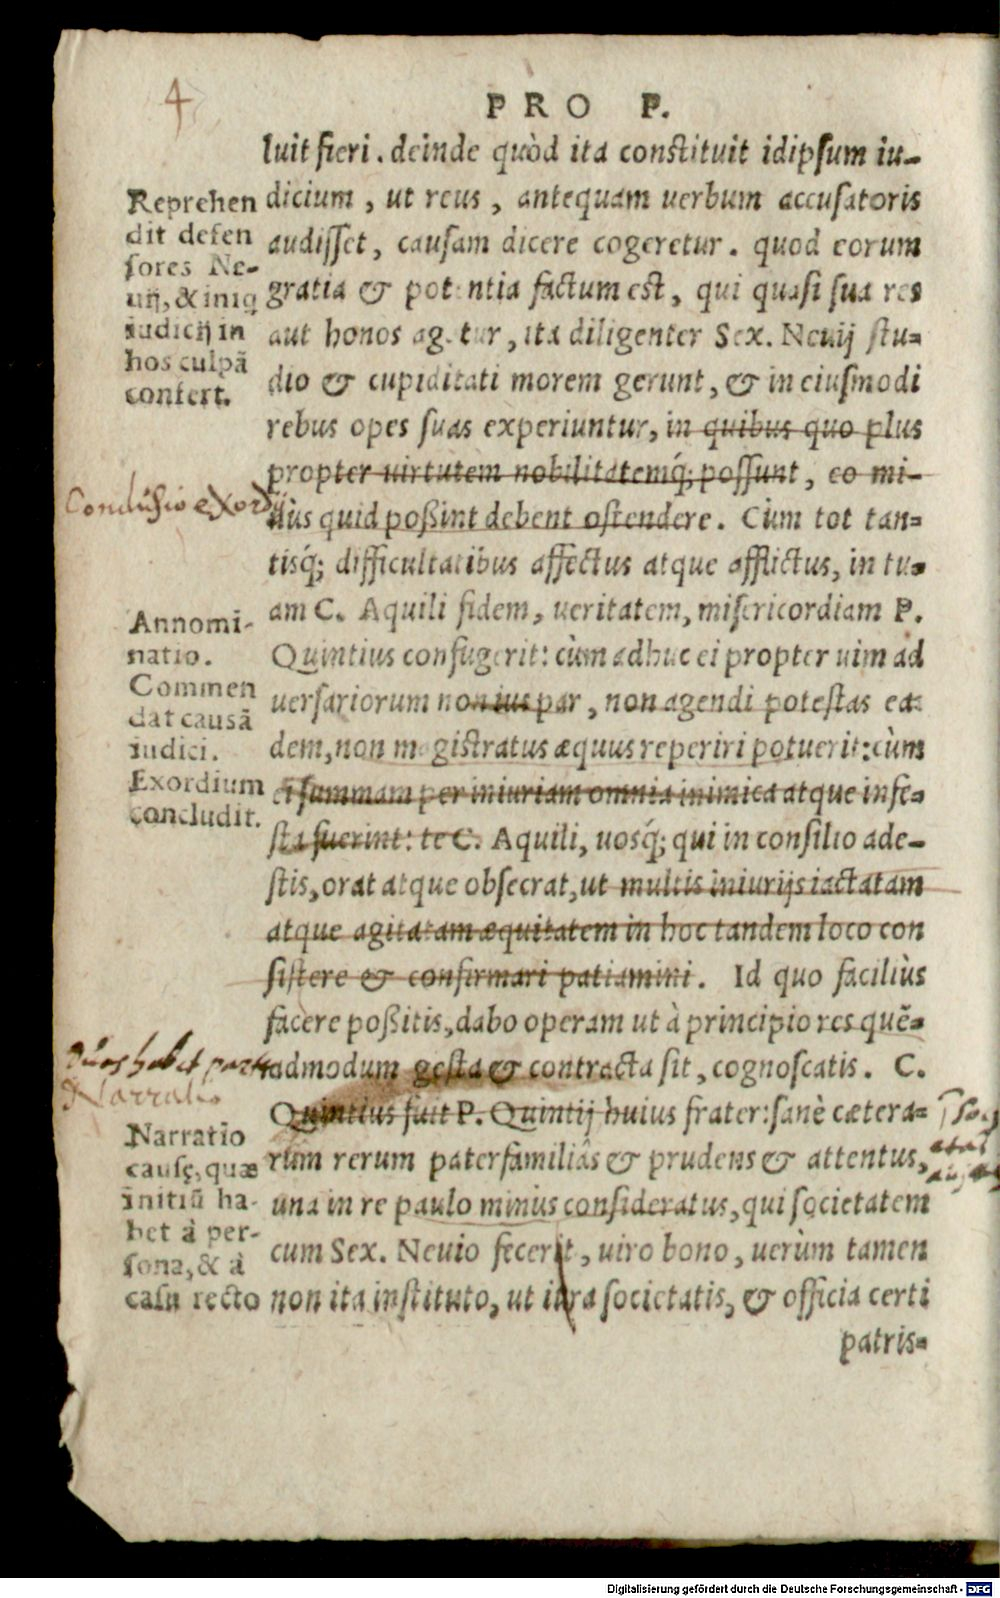 4
PRO P.
luit fieri. deinde quòd ita constituit idipsum iu-
dicium, ut reus, antequam uerbum accusatoris
audisset, causam dicere cogeretur. quod eorum
gratia & potentia factum est, qui quasi sua res
aut honos agatur, ita diligenter Sex. Neuij stu-
dio & cupiditati morem gerunt, & in eiusmodi
rebus opes suas experiuntur, in quibus quo plus
propter uirtutem nobilitatemq́; possunt, eo mi-
nus quid poßint debent ostendere. Cùm tot tan-
tisq́; difficultatibus affectus atque afflictus, in tu-
am C. Aquili fidem, ueritatem, misericordiam P.
Quintius confugerit: cùm adhuc ei propter uim ad
uersariorum non ius par, non agendi potestas ea-
dem, non magistratus æquus reperiri potuerit: cùm
ei summam per iniuriam omnia inimica atque infe-
sta fuerint: te C. Aquili, uosq́; qui in consilio ade-
stis, orat atque obsecrat, ut multis iniurijs iactatam
atque agitatam æquitatem in hoc tandem loco con
sistere & confirmari patiamini. Id quo faciliùs
facere poßitis, dabo operam ut à principio res quē-
admodum gesta & contracta sit, cognoscatis. C.
Quintius fuit P. Quintij huius frater: sanè cætera-
rum rerum paterfamiliâs & prudens & attentus,
una in re paulo minùs consideratus, qui societatem
cum Sex. Neuio fecerit, uiro bono, uerùm tamen
non ita instituto, ut iura societatis, & officia certi
patris-
Reprehen
dit defen
sores Ne-
uij, & iniq
iudicij in
hos culpā
confert.
Conclusio exordij
Annomi-
natio.
Commen
dat causā
iudici.
Exordium
concludit.
habet
Narratio
Narratio
causę, quæ
initiū ha-
bet à per-
sona, & à
casu recto
Digitalisierung gefördert durch die Deutsche Forschungsgemeinschaft - DFG